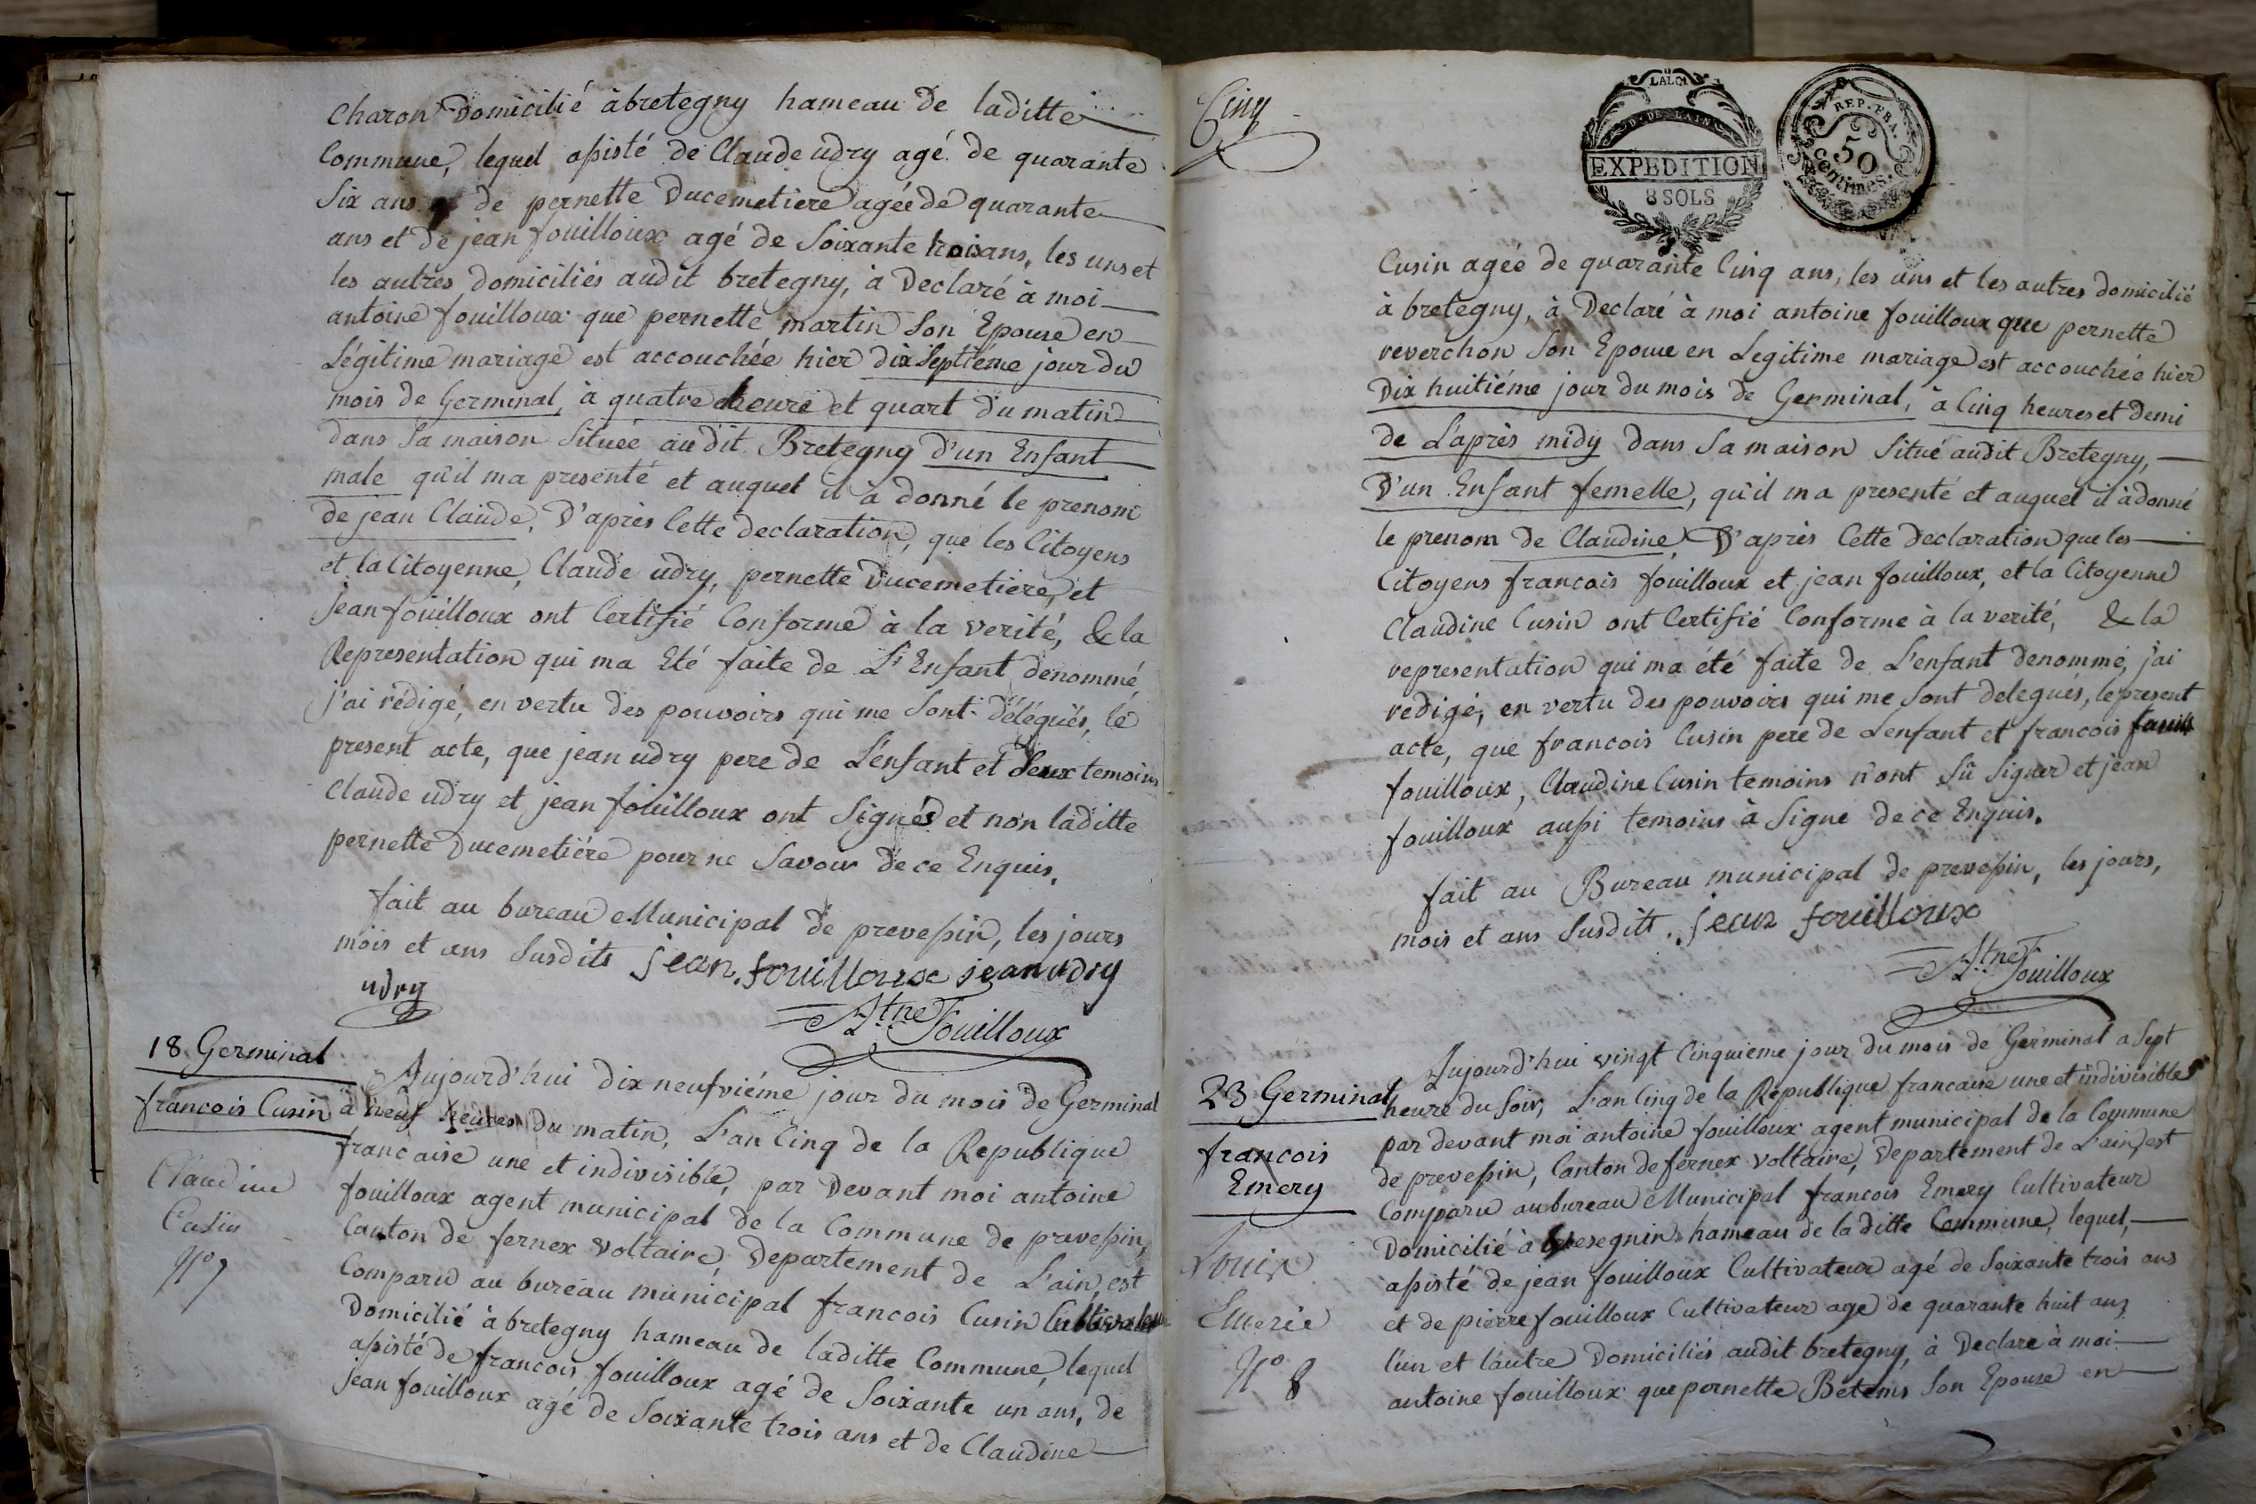 charon Domicilié à bretegny hameau de laditte
Commune, lequel assisté de Claude udry agé de quarante
Six ans de pernette Ducemetiere agée de quarante
ans et de jean fouilloux agé de Soixante trois ans, les uns et
les autres domiciliés audit bretegny, à Declaré à moi
antoine fouilloux que pernette martin Son Epouse en
Légitime mariage est accouchée hier dix Septiéme jour du
mois de Germinal, à quatre heure et quart du matin
dans Sa maison Située audit Bretegny D'un Enfant
male qu'il ma presenté et auquel il a donné le prenom
de jean Claude. D'après Cette declaration, que les Citoyens
et la Citoyenne, Claude udry, pernette Ducemetiere, et
jean fouilloux ont Certifié Conforme à la verité, & la
Representation qui ma Eté faite de L'Enfant dénommé
j'ai rédigé, en vertu des pouvoirs qui me Sont délégués, le
present acte, que jean udry pere de L'enfant et deux temoins
Claude udry et jean fouilloux ont Signés et non laditte
pernette Ducemetiére pour ne Savoir de ce Enquis.
fait au bureau Municipal de prevessin, les jours
mois et ans Susdits jean fouilloux jean udry
udry
Atne Fouilloux
18 Germinal
francois Cusin
Claudine
Cusin
N° 7
Aujourd'hui dix neufviéme jour du mois de Germinal
à neuf heures du matin, L'an Cinq de la Republique
francaise une et indivisible, par Devant moi antoine
fouilloux agent municipal de la Commune de prevessin,
Canton de fernex voltaire, Departement de L'ain, est
Comparu au bureau municipal francois Cusin Cultivateur
Domicilié à bretegny hameau de laditte Commune, lequel
assisté de francois fouilloux agé de Soixante un ans, de
jean fouilloux agé de Soixante trois ans et de Claudine
Cinq
LALOI
D. DE L'AIN
EXPEDITION
8 SOLS
REP. FRA.
50
centimes.
Cusin agée de quarante Cinq ans, les uns et les autres domicilié
à bretegny, à Declaré à moi antoine fouilloux que pernette
reverchon Son Epouse en Legitime mariage est accouchée hier
Dix huitiéme jour du mois de Germinal, à Cinq heures et demi
de L'après midy dans Sa maison Situé audit Bretegny,
D'un Enfant femelle, qu'il ma presenté et auquel il à donné
le prenom de Claudine, D'après Cette declaration que les
Citoyens francois fouilloux et jean fouilloux, et la Citoyenne
Claudine Cusin ont Certifié Conforme à la verité, & la
representation qui ma été faite de L'enfant denommé, j'ai
redigé, en vertu des pouvoirs qui me Sont delegués, le present
acte, que francois Cusin pere de L'enfant et francois
fouilloux, Claudine Cusin temoins n'ont Sû Signer et jean
fouilloux aussi temoins à Signe de ce Enquis.
fait au Bureau municipal de prevessin, les jours,
mois et ans Susdits. jean fouilloux
Atne Fouilloux
23 Germinal
francois
Emery
Louise
Emerie
N° 8
Aujourd'hui vingt Cinquieme jour du mois de Germinal a Sept
heure du Soir, L'an Cinq de la Republique francaise une et indivisible
par devant moi antoine fouilloux agent municipal de la Commune
de prevessin, Canton de fernex voltaire, Departement de L'ain, est
Comparu au bureau Municipal francois Emery Cultivateur
Domicilié à hameau de la ditte Commune, lequel,
assisté de jean fouilloux Cultivateur agé de Soixante trois ans
et de pierre fouilloux Cultivateur age de quarante huit ans
l'un et l'autre Domiciliés audit bretegny, à Declare à moi
antoine fouilloux que pernette Betems Son Epouse en